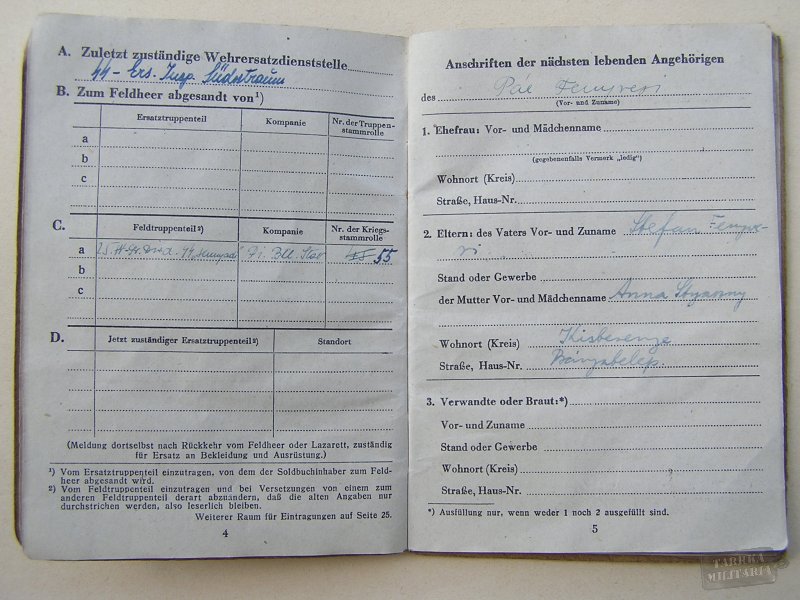 A. Zuletzt zuständige Wehrersatzdienststelle
SS-Ers. Insp. Südostraum
B. Zum Feldheer abgesandt von¹)
Ersatztruppenteil
Kompanie
Nr. der Truppen-
stammrolle
a
b
c
C.
Feldtruppenteil²)
Kompanie
Nr. der Kriegs-
stammrolle
a
55
b
c
D.
Jetzt zuständiger Ersatztruppenteil²)
Standort
(Meldung dortselbst nach Rückkehr vom Feldheer oder Lazarett, zuständig
für Ersatz an Bekleidung und Ausrüstung.)
¹) Vom Ersatztruppenteil einzutragen, von dem der Soldbuchinhaber zum Feld-
heer abgesandt wird.
²) Vom Feldtruppenteil einzutragen und bei Versetzungen von einem zum
anderen Feldtruppenteil derart abzuändern, daß die alten Angaben nur
durchstrichen werden, also leserlich bleiben.
Weiterer Raum für Eintragungen auf Seite 25.
4
Anschriften der nächsten lebenden Angehörigen
des Pál
(Vor- und Zuname)
1. Ehefrau: Vor- und Mädchenname
(gegebenenfalls Vermerk „ledig")
Wohnort (Kreis)
Straße, Haus-Nr.
2. Eltern: des Vaters Vor- und Zuname Stefan
Stand oder Gewerbe
der Mutter Vor- und Mädchenname Anna
Wohnort (Kreis)
Straße, Haus-Nr.
3. Verwandte oder Braut:*)
Vor- und Zuname
Stand oder Gewerbe
Wohnort (Kreis)
Straße, Haus-Nr.
*) Ausfüllung nur, wenn weder 1 noch 2 ausgefüllt sind.
5
TARFKA
MILITARIA